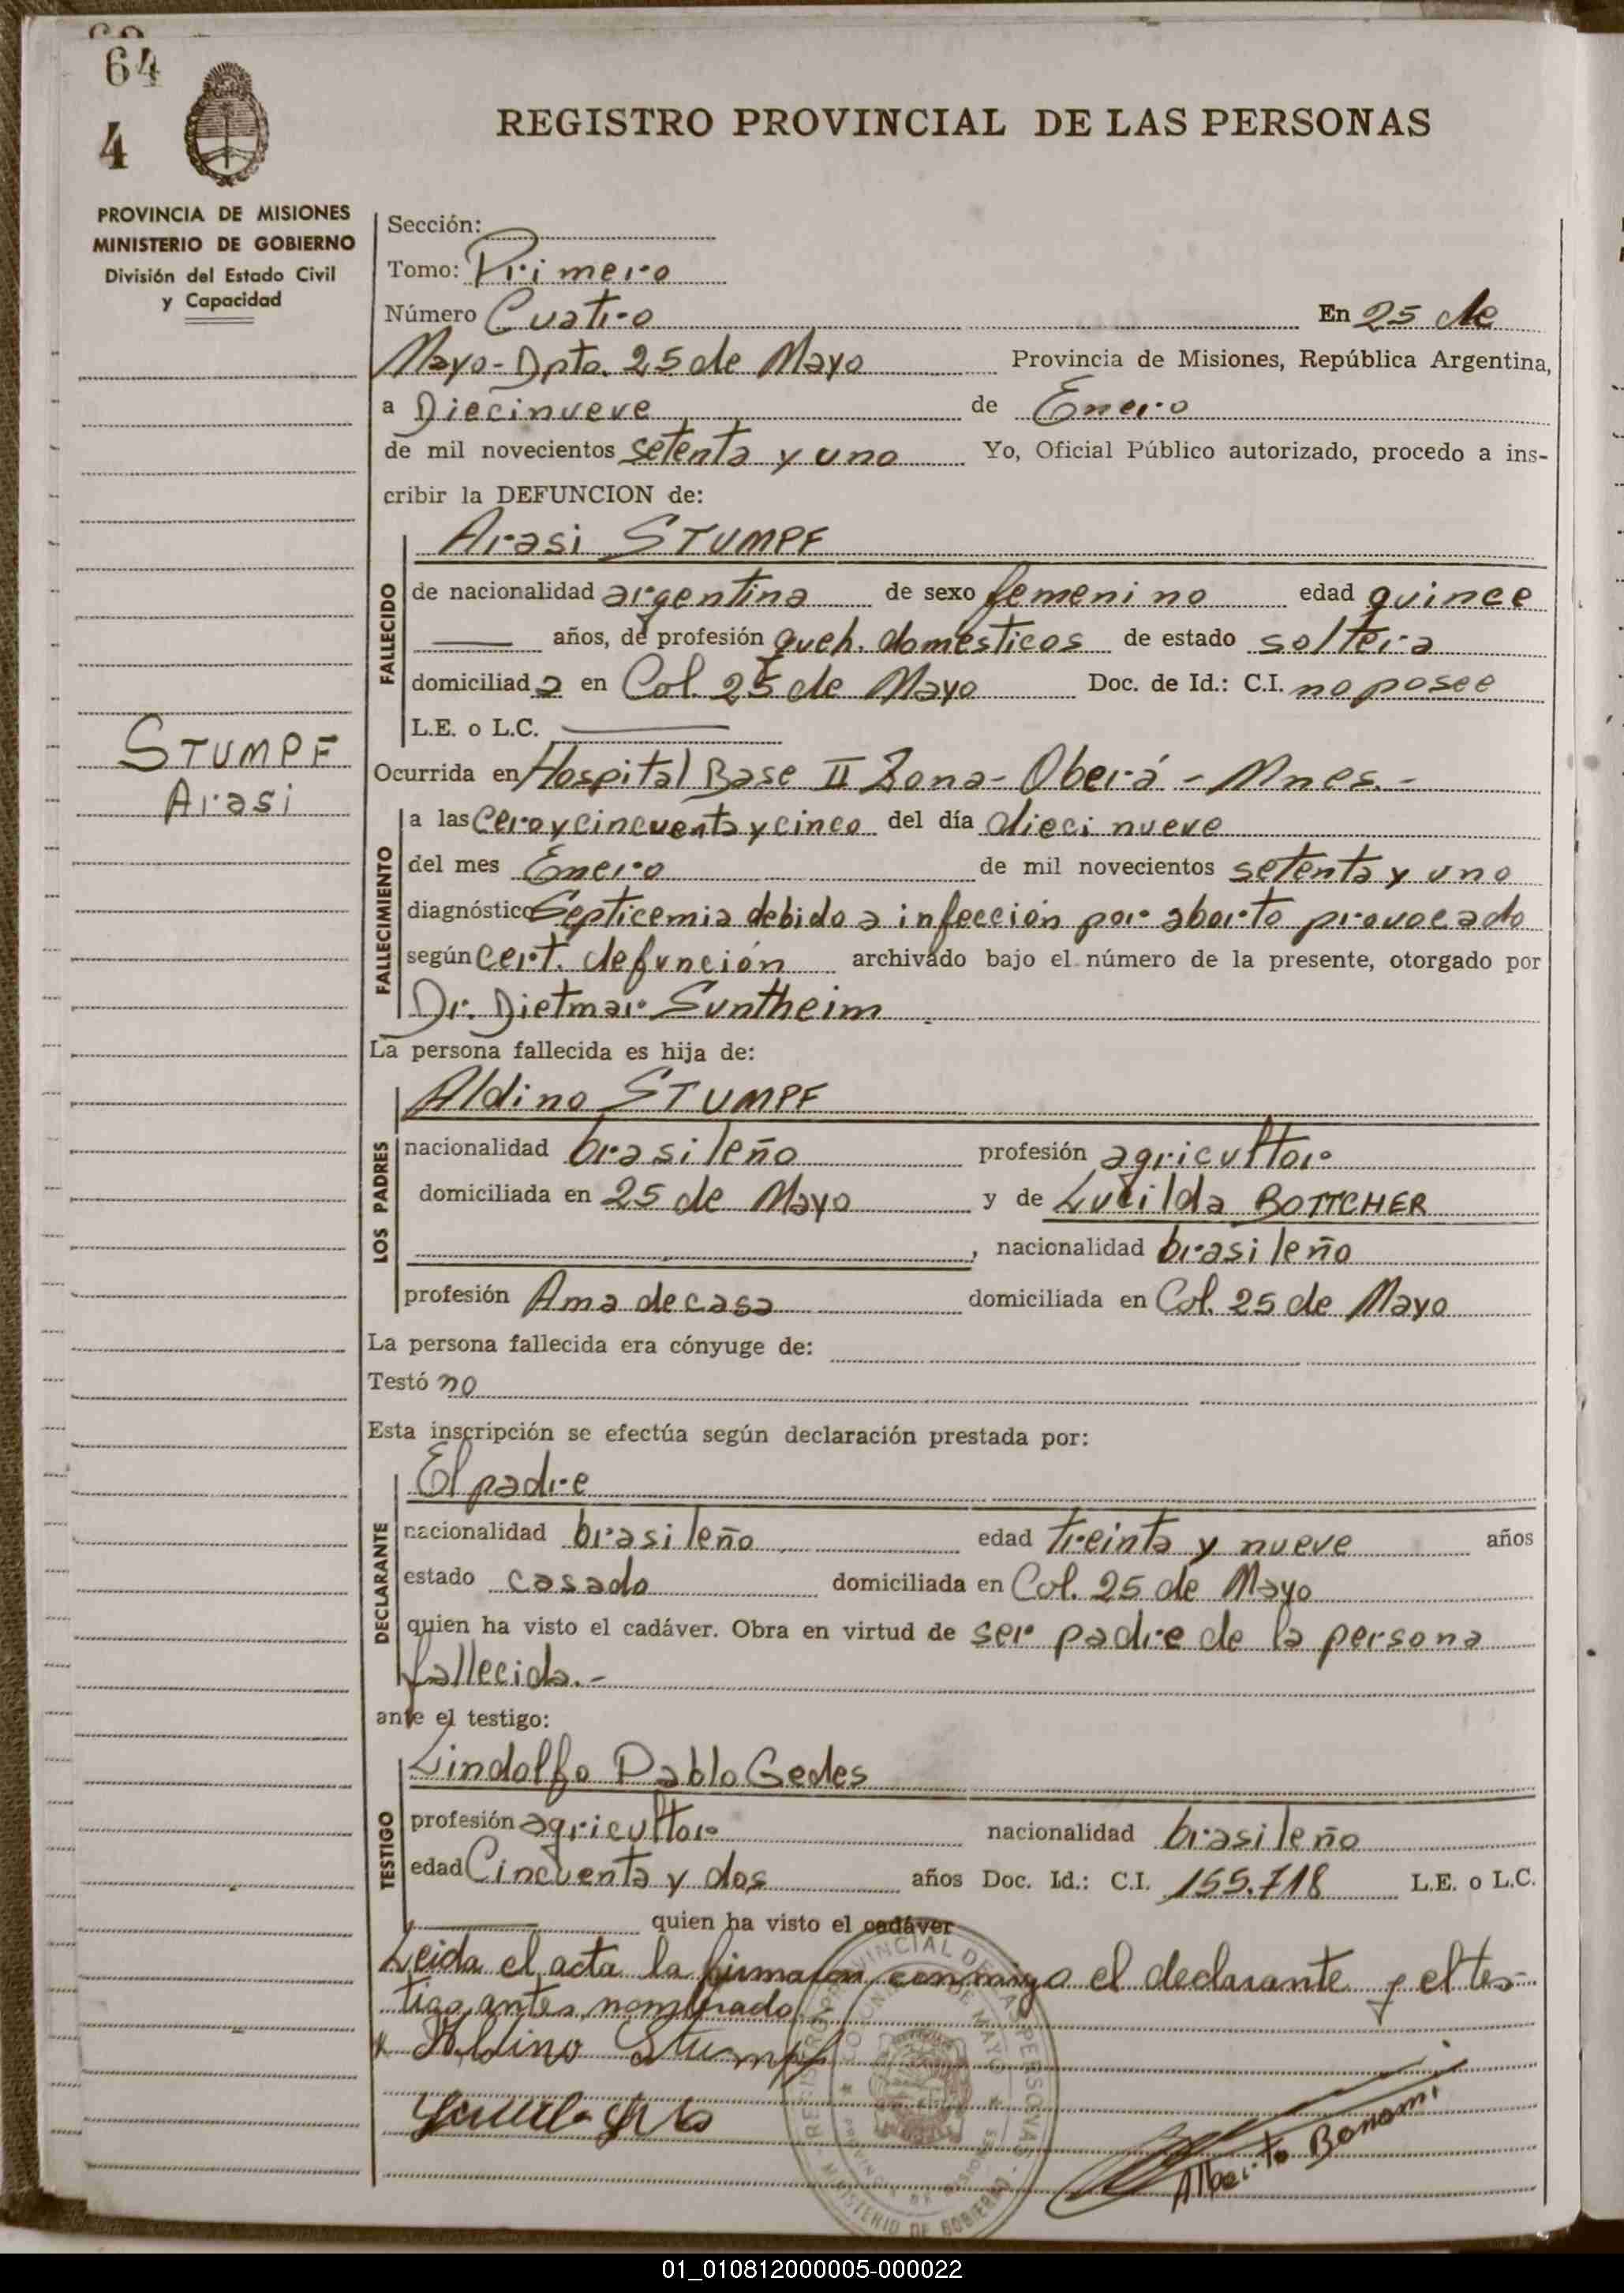 64
4
REGISTRO PROVINCIAL DE LAS PERSONAS
PROVINCIA DE MISIONES
MINISTERIO DE GOBIERNO
División del Estado Civil
y Capacidad
Sección:
Tomo: Primero
Número Cuatro En 25 de
Mayo - Dpto. 25 de Mayo Provincia de Misiones, República Argentina,
a Diecinueve de Enero
de mil novecientos setenta y uno Yo, Oficial Público autorizado, procedo a ins-
cribir la DEFUNCION de:
Arasi STUMPF
FALLECIDO
de nacionalidad argentina de sexo femenino edad quince
años, de profesión queh. domésticos de estado soltera
domiciliada en Col. 25 de Mayo Doc. de Id.: C.I. no posee
L.E. o L.C.
STUMPF
Arasi
Ocurrida en Hospital Base II Zona - Oberá - Mnes. -
FALLECIMIENTO
a las Cero y cincuenta y cinco del día dieci nueve
del mes Enero de mil novecientos setenta y uno
diagnóstico Septicemia debido a infección por aborto provocado
según cert. defunción archivado bajo el número de la presente, otorgado por
Dr. Dietmar Suntheim
La persona fallecida es hija de:
Aldino STUMPF
LOS PADRES
nacionalidad brasileño profesión agricultor
domiciliada en 25 de Mayo y de Lucilda BOTTCHER
, nacionalidad brasileño
profesión Ama de casa domiciliada en Col. 25 de Mayo
La persona fallecida era cónyuge de:
Testó no
Esta inscripción se efectúa según declaración prestada por:
El padre
DECLARANTE
nacionalidad brasileño edad treinta y nueve años
estado casado domiciliada en Col. 25 de Mayo
quien ha visto el cadáver. Obra en virtud de ser padre de la persona
fallecida.-
ante el testigo:
Lindolfo Pablo Gedes
TESTIGO
profesión agricultor nacionalidad brasileño
edad Cincuenta y dos años Doc. Id.: C.I. 155.718 L.E. o L.C.
quien ha visto el cadáver
Leida el acta la firmaron conmigo el declarante y el tes-
tigo antes nombrado
Aldino Stumpf
Alberto Bonomi
01_010812000005-000022